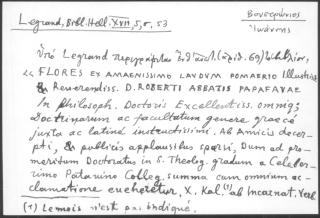 Legrand, Bibl. Hell. XVII, 5, σ. 53
Βονσερώνιος
Ἰωάννης
Ὑπὸ Legrand περιγράφεται (ἀριθ. 69)
« FLORES EX AMAENISSIMO LAUDUM POMAERIO Illustriss.
& Reverendiss. D. ROBERTI ABBATIS PAPAFAVAE
in Philosoph. Doctoris Excellentiss. omnigenae
Doctrinarum ac facultatum genere graecè
juxta ac latinè instructissimi. Ab Amicis decer-
pti, & publicis applausibus sparsi, Dum ad pro-
meritum Doctoratus in S. Theolog. gradum a Celeber-
rimo Patavino Colleg. summa cum omnium ac-
clamatione eveheretur, X. Kal. (1) ab Incarnat. Verb.
(1) Le mois n'est pas indiqué.